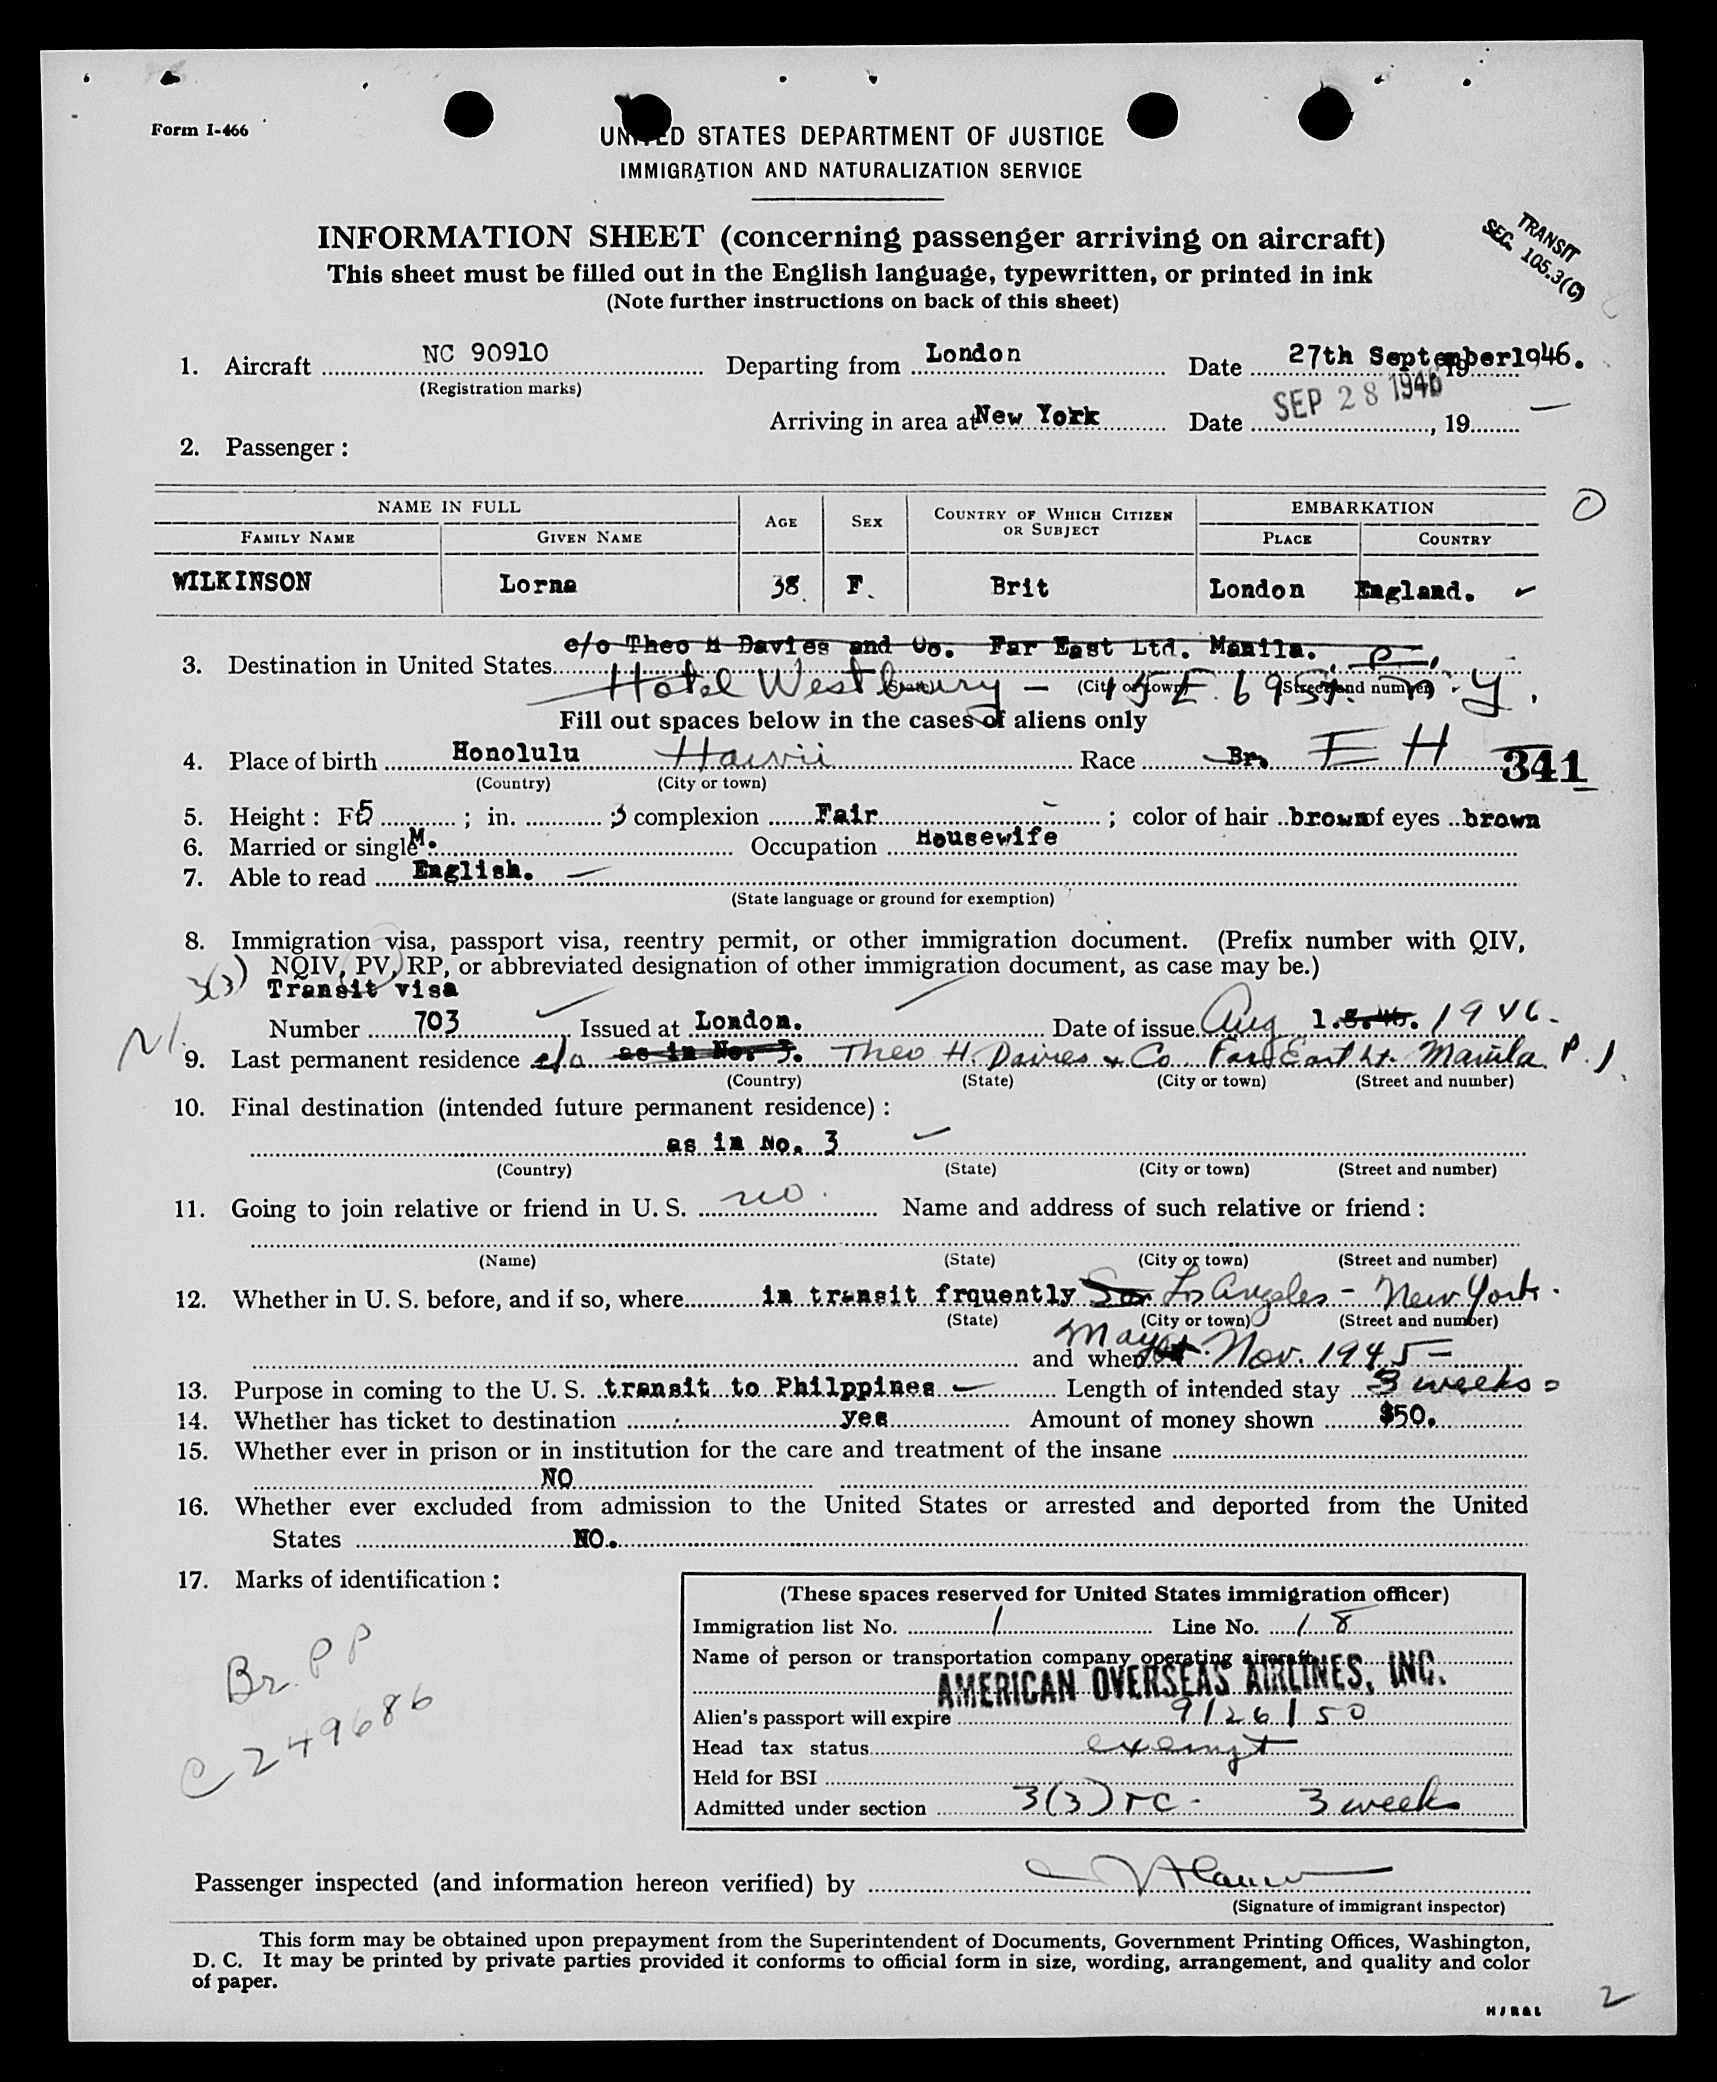 Form I-466
UNITED STATES DEPARTMENT OF JUSTICE
IMMIGRATION AND NATURALIZATION SERVICE
INFORMATION SHEET (concerning passenger arriving on aircraft)
TRANSIT
SEC. 105.3(C)
This sheet must be filled out in the English language, typewritten, or printed in ink
(Note further instructions on back of this sheet)
1. Aircraft NC 90910 Departing from London Date 27th September 1946.
(Registration marks)
Arriving in area at New York Date SEP 28 1946, 19
2. Passenger :
NAME IN FULL AGE SEX COUNTRY OF WHICH CITIZEN OR SUBJECT EMBARKATION
FAMILY NAME GIVEN NAME PLACE COUNTRY
WILKINSON Lorna 38 F. Brit London England.
c/o Theo H Davies and Co. Far East Ltd. Manila. P.
3. Destination in United States
Hotel Westbury - 15 E. 69 St. N.Y.
(City or town) (Street and number)
Fill out spaces below in the cases of aliens only
4. Place of birth Honolulu Hawii Race Br. E H 341
(Country) (City or town)
5. Height : Ft 5 ; in. 3 ; complexion Fair ; color of hair brown of eyes brown
6. Married or single M. Occupation Housewife
7. Able to read English.
(State language or ground for exemption)
8. Immigration visa, passport visa, reentry permit, or other immigration document. (Prefix number with QIV,
3(3) NQIV, PV, RP, or abbreviated designation of other immigration document, as case may be.)
Transit visa
Number 703 Issued at London. Date of issue Aug 1.8.46. 1946-
9. Last permanent residence c/o as in No. 3. Theo H. Davies & Co. Far East Lt. Manila P.I.
(Country) (State) (City or town) (Street and number)
10. Final destination (intended future permanent residence) :
as in No. 3
(Country) (State) (City or town) (Street and number)
11. Going to join relative or friend in U. S. no. Name and address of such relative or friend :
(Name) (State) (City or town) (Street and number)
12. Whether in U. S. before, and if so, where in transit frquently Los Angeles - New York.
(State) (City or town) (Street and number)
and when May Nov. 1945 -
13. Purpose in coming to the U. S. transit to Philppines Length of intended stay 3 weeks
14. Whether has ticket to destination yes Amount of money shown $50.
15. Whether ever in prison or in institution for the care and treatment of the insane
NO
16. Whether ever excluded from admission to the United States or arrested and deported from the United
States NO.
17. Marks of identification :
Br. PP
C 249686
(These spaces reserved for United States immigration officer)
Immigration list No. 1 Line No. 18
Name of person or transportation company operating aircraft
AMERICAN OVERSEAS AIRLINES, INC.
Alien's passport will expire 9/26/50
Head tax status exempt
Held for BSI
Admitted under section 3(3) TC - 3 weeks
Passenger inspected (and information hereon verified) by
(Signature of immigrant inspector)
This form may be obtained upon prepayment from the Superintendent of Documents, Government Printing Offices, Washington,
D. C. It may be printed by private parties provided it conforms to official form in size, wording, arrangement, and quality and color
of paper.
2